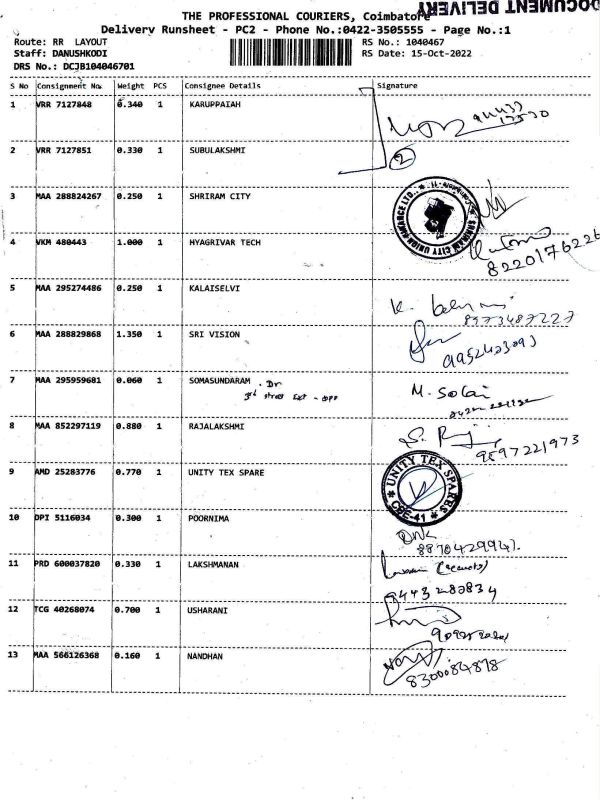 DOCUMENT DELIVERY
THE PROFESSIONAL COURIERS, Coimbatore
Delivery Runsheet - PC2 - Phone No.:0422-3505555 - Page No.:1
Route: RR LAYOUT
RS No.: 1040467
Staff: DANUSHKODI
RS Date: 15-Oct-2022
DRS No.: DCJB104046701
S No Consignment No. Weight PCS Consignee Details Signature
1 VRR 7127848 0.340 1 KARUPPAIAH
2 VRR 7127851 0.330 1 SUBULAKSHMI
2
3 MAA 288824267 0.250 1 SHRIRAM CITY
SHRIRAM CITY UNION FINANCE LTD.,
4 VKM 480443 1.000 1 HYAGRIVAR TECH
8220176226
5 MAA 295274486 0.250 1 KALAISELVI
8973487227
6 MAA 288829868 1.350 1 SRI VISION
7 MAA 295959681 0.060 1 SOMASUNDARAM . Dr
M. Solai
8 MAA 852297119 0.880 1 RAJALAKSHMI
9597221973
9 AMD 25283776 0.770 1 UNITY TEX SPARE
* UNITY TEX SPARES * CBE-41
10 DPI 5116034 0.300 1 POORNIMA
11 PRD 600037820 0.330 1 LAKSHMANAN
9443282834
12 TCG 40268074 0.700 1 USHARANI
13 MAA 566126368 0.160 1 NANDHAN
8300084878